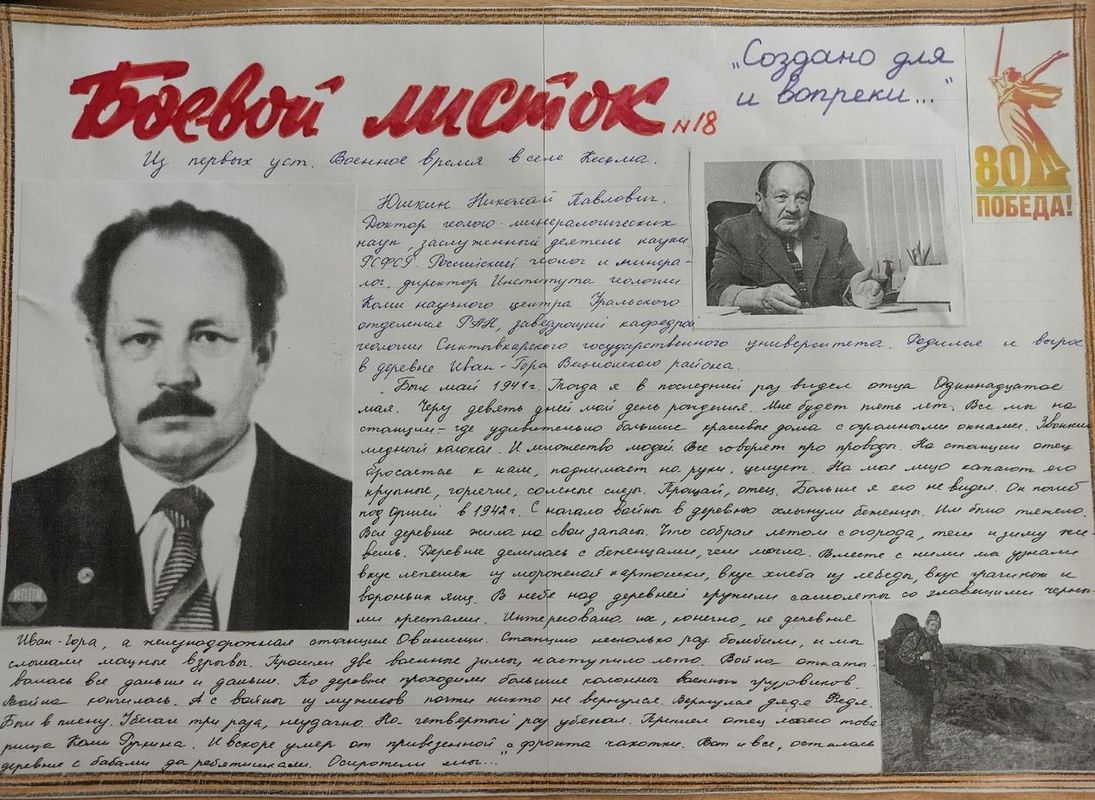 Боевой листок №18
„Создано для
и вопреки..."
80
ПОБЕДА!
Из первых уст. Военное время в селе Кесьма.
Юшкин Николай Павлович.
Доктор геолого-минералогических
наук, заслуженный деятель науки
РСФСР. Российский геолог и минера-
лог, директор Института геологии
Коми научного центра Уральского
отделения РАН, заведующий кафедрой
геологии Сыктывкарского государственного университета. Родился и вырос
в деревне Иван-Гора Весьегонского района.
Был май 1941г. Тогда я в последний раз видел отца. Одиннадцатое
мая. Через девять дней мой день рождения. Мне будет пять лет. Все мы на
станции - где удивительно большие красивые дома с огромными окнами. Звонкий
медный колокол. И множество людей. Все говорят про проводы. На станции отец
бросается к нам, поднимает на руки, целует. На мое лицо капают его
крупные, горячие, соленые слезы. Прощай, отец. Больше я его не видел. Он погиб
под Оршей в 1942г. С начала войны в деревню хлынули беженцы. Им было тяжело.
Вся деревня жила на свои запасы. Что собрал летом с огорода, тем и зиму жи-
вешь. Деревня делилась с беженцами, чем могла. Вместе с ними мы узнали
вкус лепешек из мороженой картошки, вкус хлеба из лебеды, вкус грачиных и
вороньих яиц. В небе над деревней кружили самолеты со зловещими черны-
ми крестами. Интересовала их, конечно, не деревня
Иван-Гора, а железнодорожная станция Овинищи. Станцию несколько раз бомбили, и мы
слышали мощные взрывы. Прошли две военные зимы, наступило лето. Война откаты-
валась все дальше и дальше. По деревне проходили большие колонны военных грузовиков.
Война кончилась. А с войны из мужиков почти никто не вернулся. Вернулся дядя Федя.
Был в плену. Убегал три раза, неудачно. На четвертый раз убежал. Пришел отец моего това-
рища Коли Гунина. И вскоре умер от привезенной с фронта чахотки. Вот и все, осталась
деревня с бабами да ребятишками. Осиротели мы...